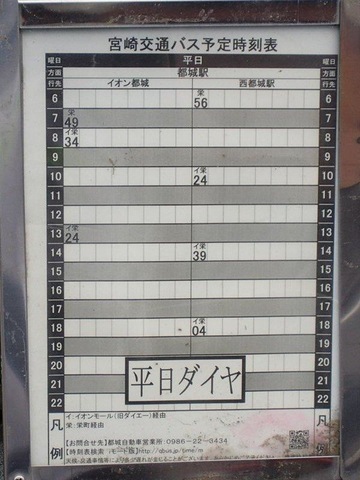 宮崎交通バス予定時刻表
曜日 平日 曜日
方面 都城駅 方面
行先 イオン都城 西都城駅 行先
6 栄 56 6
7 栄 49 7
8 イ栄 34 8
9 9
10 イ栄 24 10
11 11
12 12
13 イ栄 24 13
14 イ栄 39 14
15 15
16 16
17 17
18 イ栄 04 18
19 19
20 20
21 21
22 22
平日ダイヤ
凡例 凡例
イ:イオンモール(旧ダイエー)経由
栄:栄町経由
【お問合せ先】都城自動車営業所:0986-22-3434
【時刻表検索(モード版)】http://qbus.jp/time/m